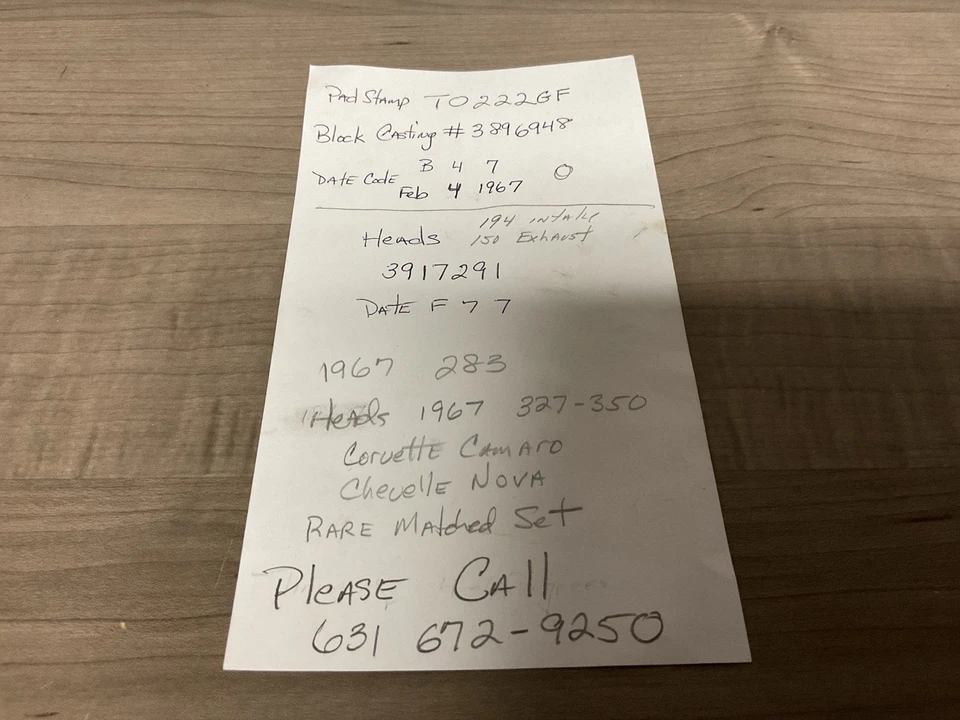 Pad Stamp TO222GF
Block Casting # 3896948
Date Code B 4 7
Feb 4 1967
Heads 194 intake
150 Exhaust
3917291
Date F 7 7
1967 283
Heads 1967 327-350
Corvette Camaro
Chevelle Nova
Rare Matched Set
Please Call
631 672-9250